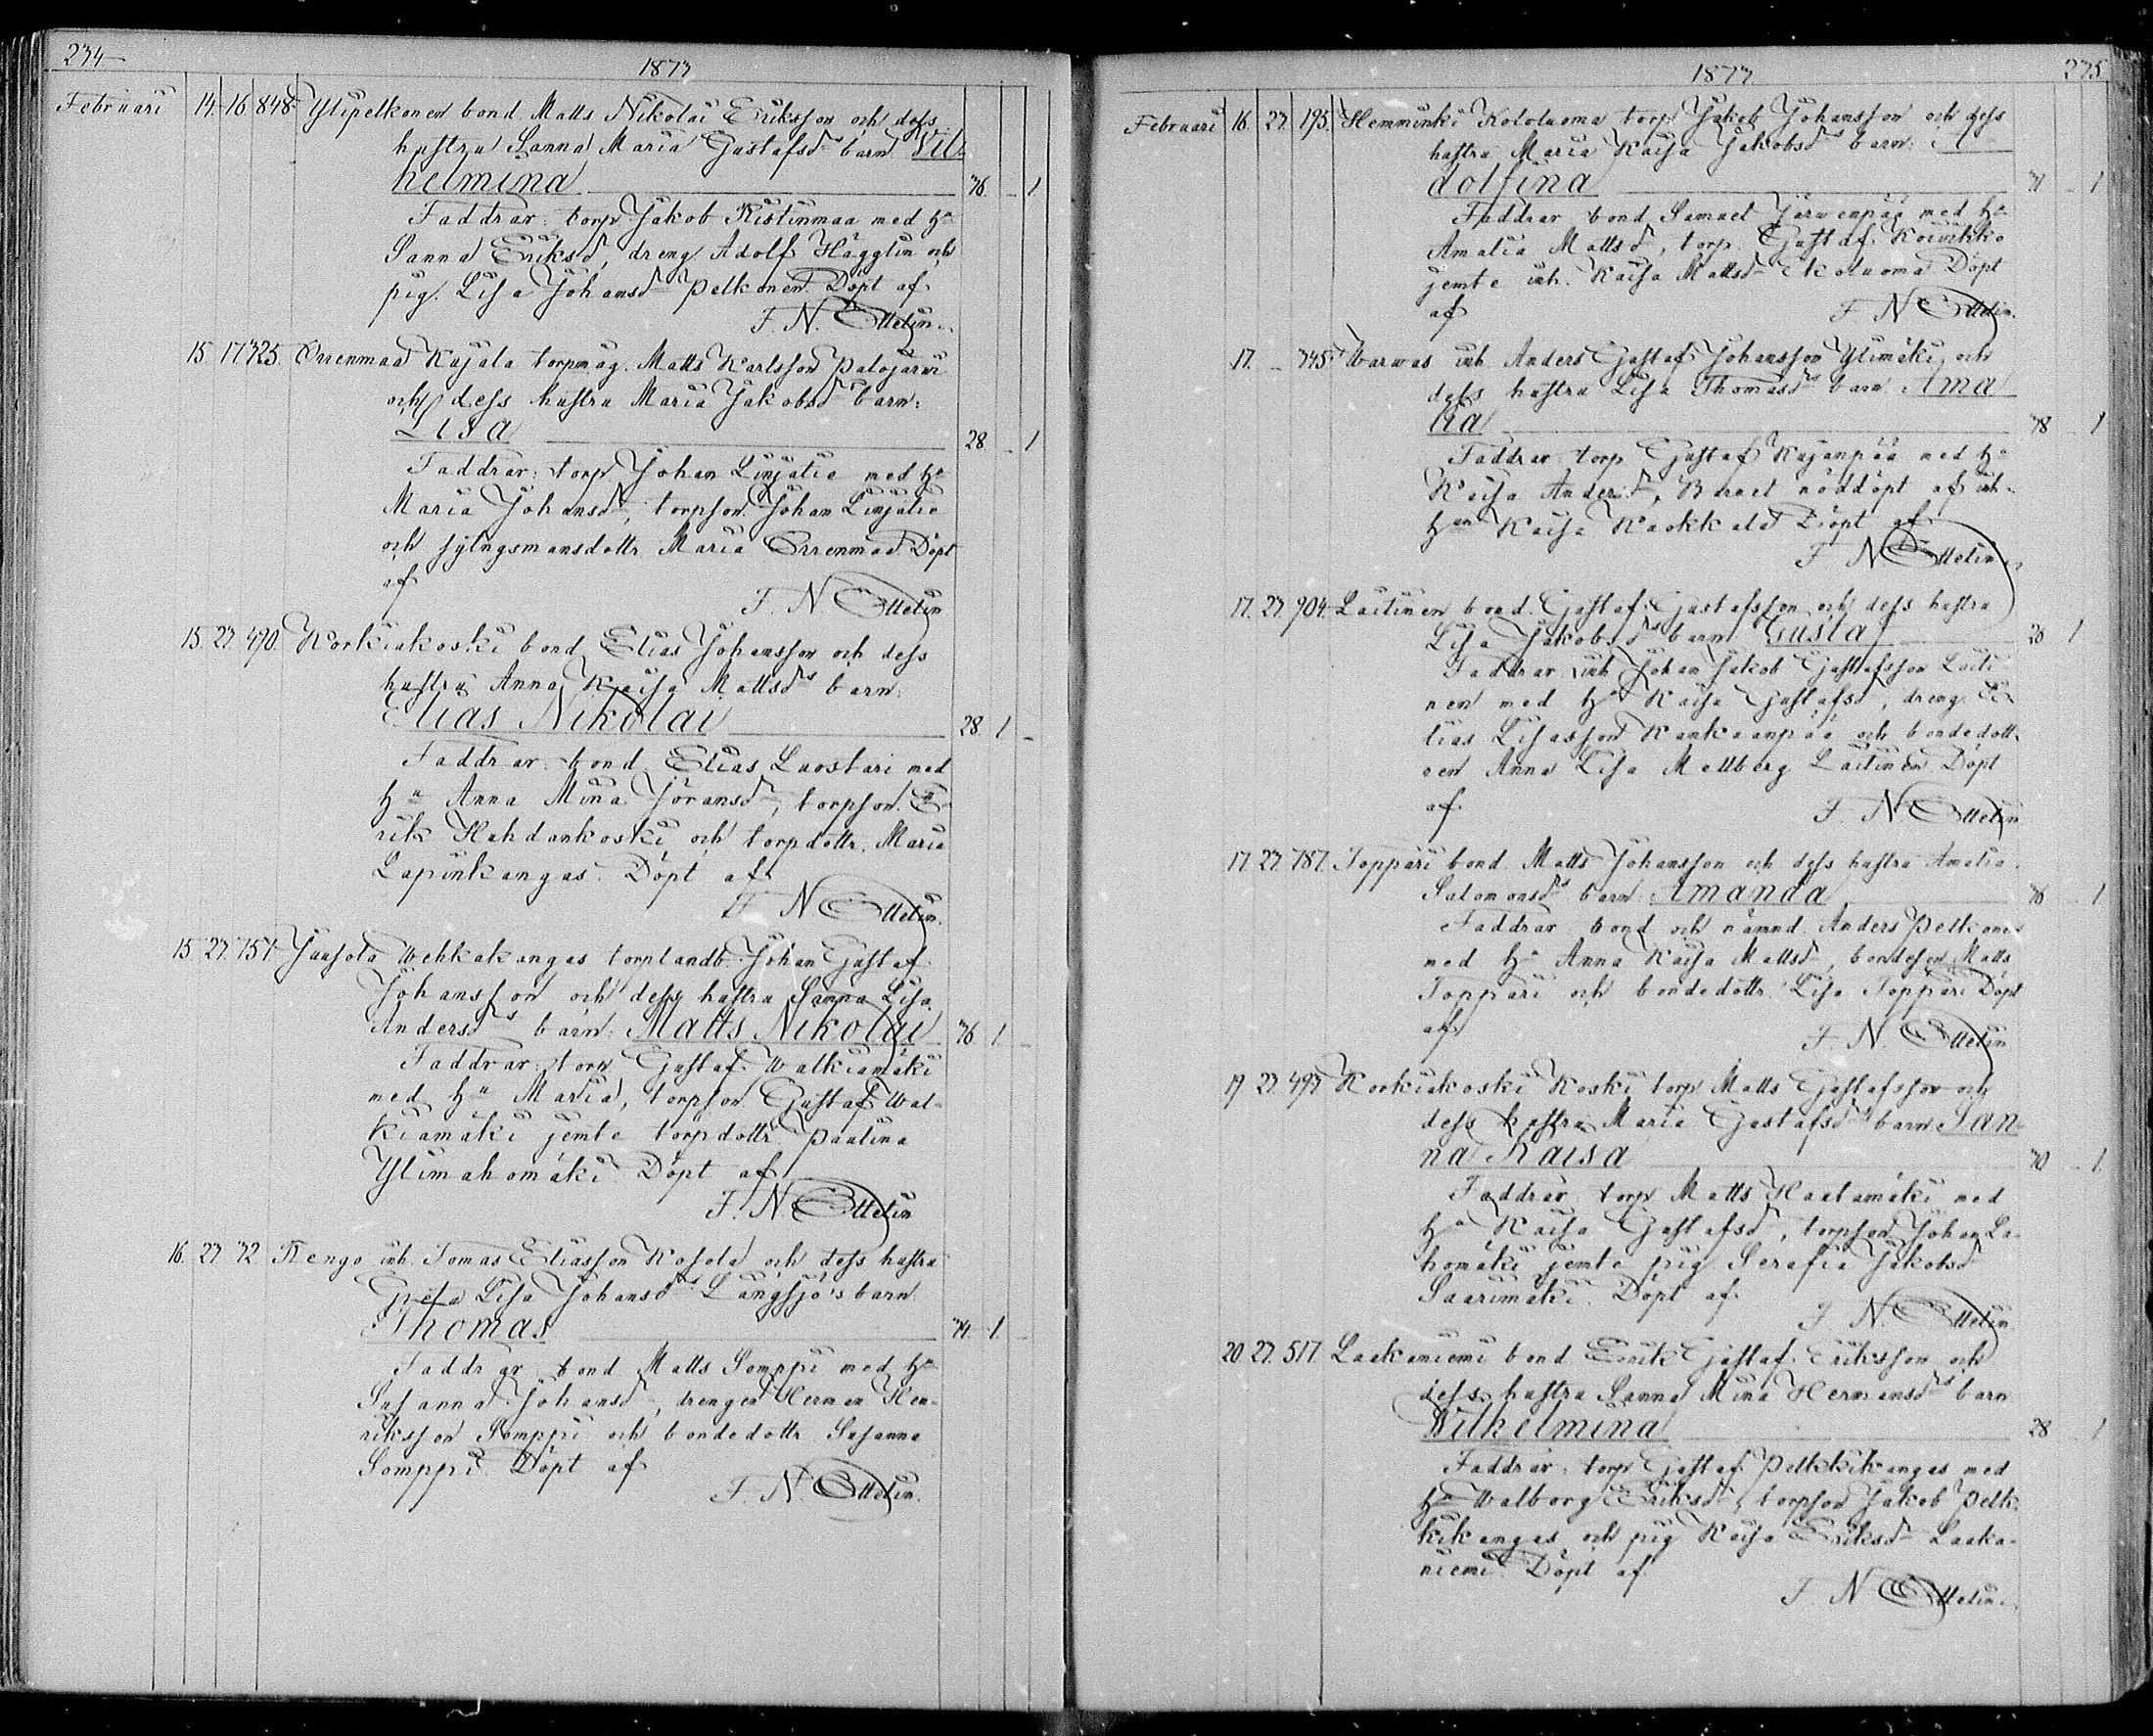 234
1873
Februari 14. 16 848. Ylipelkonen bond. Matts Nikolai Eriksson och dess
hustru Sanna Maria Gustafsd:s barn Vil-
helmina 36. - 1
Faddrar: torp. Jakob Ristinmaa med h:u
Sanna Eriksd:r, dreng Adolf Hägglin och
pig. Lisa Johansd:r Pelkonen. Döpt af
F. N. Ottelin.
15 17 325. Orrenmaa Kujala torpmåg. Matts Karlsson Palojärvi
och dess hustru Maria Jakobsd:s barn:
Lisa 28. - 1
Faddrar: torp Johan Linjalie med h:u
Maria Johansd:r, torpson. Johan Linjalie
och sytngsmansdottr. Maria Orrenmaa. Döpt
af
F. N. Ottelin
15. 27. 490. Korkiakoski bond. Elias Johansson och dess
hustru Anna Kaisa Mattsd:s barn:
Elias Nikolai 28. 1 -
Faddrar: bond. Elias Luostari med
h:u Anna Mina Göransd:r, torpson. E-
rik Hahdankoski och torpdottr. Maria
Lapinkangas. Döpt af
F. N. Ottelin.
15 27. 157. Jaasola Wehkakangas torplandb. Johan Gustaf
Johansson och dess hustru Sanna Lisa
Andersd:s barn: Matts Nikolai 36 1. -
Faddrar: torp Gustaf Walkiamäki
med h:u Maria, torpson. Gustaf Wal-
kiamäki jemte torpdottr. Paulina
Ylimahomäki. Döpt af
F. N. Ottelin
16. 27. 72. Rengo inh. Tomas Eliasson Kosola och dess hustru
Greta Lisa Johansd:r Långsjö's barn
Thomas 34. 1. -
Faddrar: bond Matts Somppi med h:u
Susanna Johansd:r, drengen Herman Hen-
riksson Somppi och bondedottr Susanna
Somppi. Döpt af
F. N. Ottelin.
1873
235
Februari 16. 27. 195. Hemminki Kololuoma torp Jakob Johansson och dess
hustru Maria Kaisa Jakobsd:s barn: A
dolfina 31 - 1
Faddrar bond. Samuel Järvenpää med h:u
Amalia Mattsd:r, torp. Gustaf Koivikko
jemte inh. Kaisa Mattsd:r Ekoluoma. Döpt
af F. N. Ottelin.
17. - 745. Warwas inh. Anders Gustaf Johansson Ylimäki och
dess hustru Lisa Thomasd:s barn Ama
lia 38 - 1
Faddrar torp Gustaf Kujanpää med h:u
Kaisa Andersd:r, Barnet nöddöpt af inh.
h:un Kaisa Kaokkola. Döpt af
F. N Ottelin.
17. 27. 904. Laitinen bond. Gustaf Gustafsson och dess hustru
Lisa Jakobsd:s barn: Gustaf 26 1
Faddrar: inh Johan Jakob Gustafsson Laiti-
nen med h:u Kaisa Gustafsd:r, dreng. E-
lias Lisasson Kankaanpää och bondedott-
ren Anna Lisa Mellberg Laitinen. Döpt
af F. N Ottelin
17. 27. 787. Toppari bond. Matts Johansson och dess hustru Amalia
Salomonsd:s barn: Amanda 36 - 1
Faddrar bond och nämnd. Anders Pelkonen
med h:u Anna Kaisa Mattsd:r, bondeson Matts
Toppari och bondedottr. Lisa Toppari Döpt
af F. N. Ottelin
19 27. 497 Korkiakoski Koski torp Matts Gustafsson och
dess hustru Maria Gustafsd:s barn San-
na Kaisa 30 - 1.
Faddrar torp Matts Haatamäki med
h:u Kaisa Gustafsd:r, torpson Johan La-
homäki jemte pig. Serafia Jakobsd:r
Saarimäki. Döpt af
F N. Ottelin
20. 27. 517. Laakaniemi bond. Erik Gustaf Eriksson och
dess hustru Sanna Mina Hermansd:s barn
Wilhelmina 28 - 1
Faddrar: torp Gustaf Pelkkikangas med
h:u Walborg Eriksd:r, torpson Jakob Pelk-
kikangas och pig Kaisa Eriksd:r Laaka-
niemi. Döpt af
F. N Ottelin.